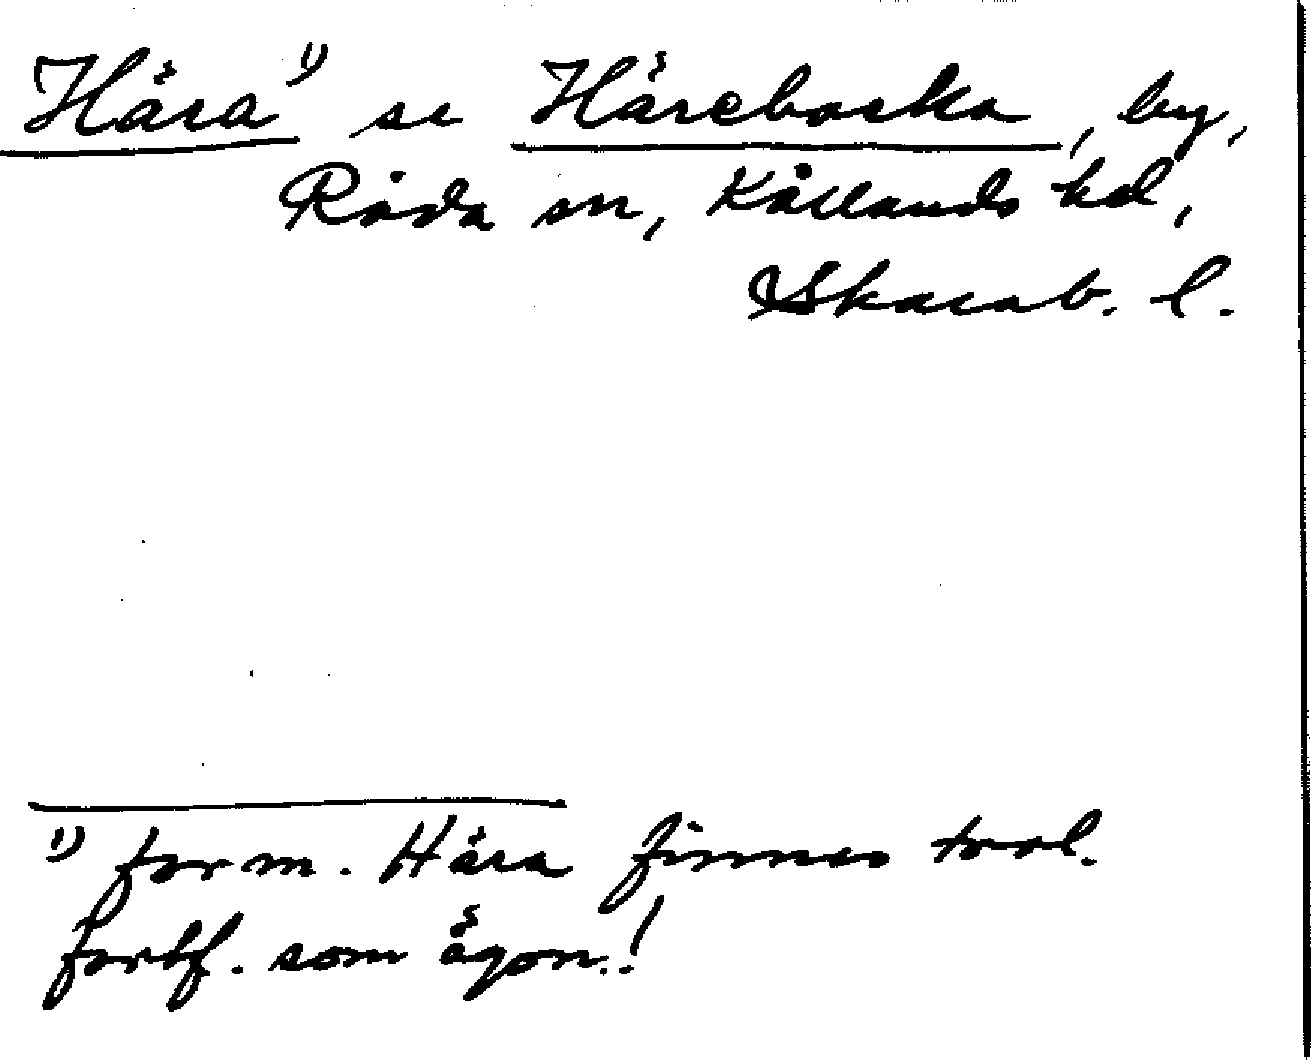 Håra 1) se Hårebacka, by,
Råda sn, Kållands hd,
Skarab. l.
1) form. Håra finnes trol.
fortf. som ägon.!